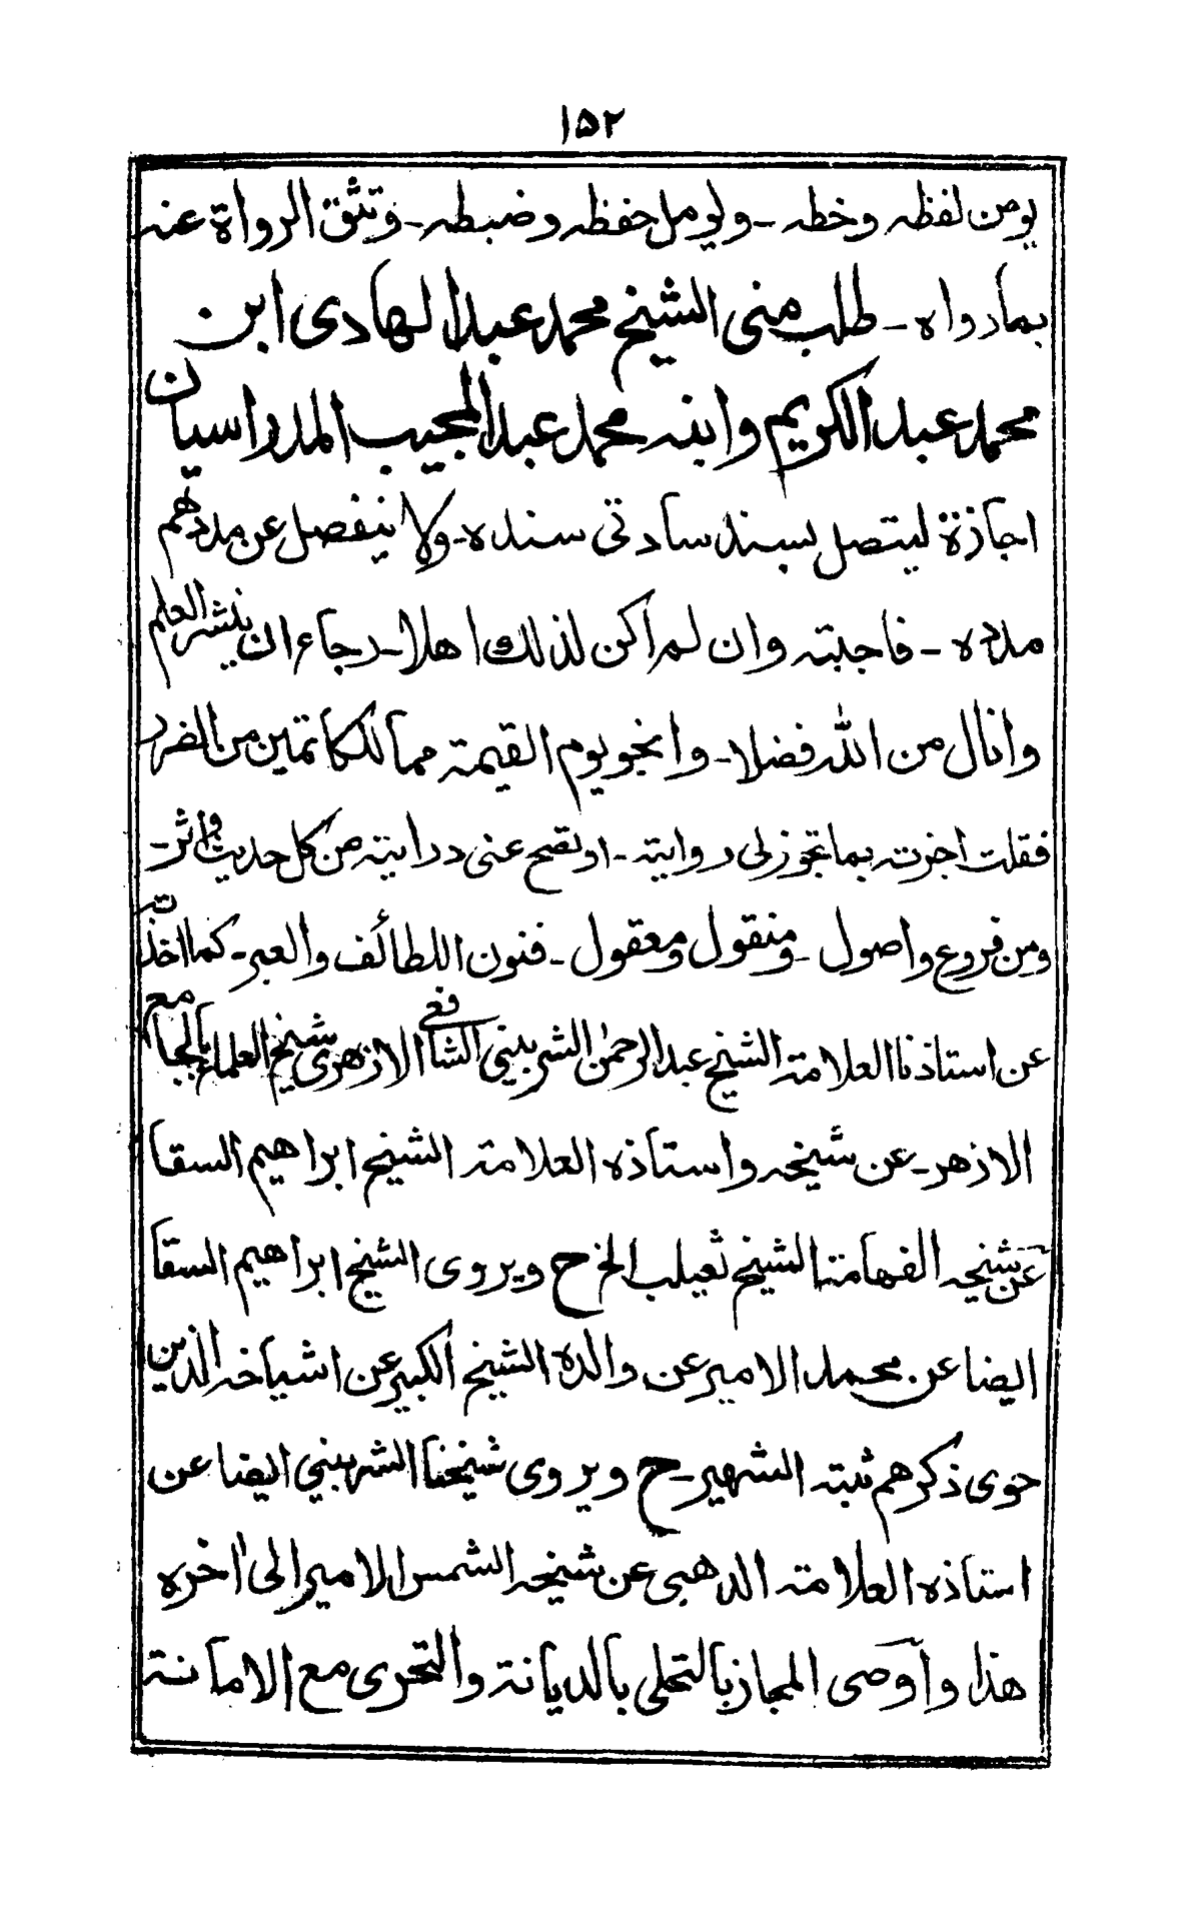 ۱۵۲
يومن لفظه وخطه - ويومل حفظه وضبطه - وتثق الرواة عنه
بما رواه - طلب منى الشيخ محمد عبد الهادى ابن
محمد عبد الكريم وابنه محمد عبد المجيب المدراسيان
اجازة ليتصل بسند ساداتى سنده - ولا ينفصل عن مددهم
مدده - فاجبته وان لم اكن لذلك اهلا - رجاء ان ينشر العلم
وانال من الله فضلا - وانجو يوم القيمة مما للكاتمين من الضرر
فقلت اجزته بما تجوز لى روايته - او تصح عنى درايته من كل حديث واثر -
ومن فروع واصول - ومنقول ومعقول - فنون اللطائف والعبر - كما اخذت
عن استاذنا العلامة الشيخ عبد الرحمٰن الشربينى الشافعى الازهرى شيخ العلماء بالجامع
الازهر - عن شيخه واستاذه العلامة الشيخ ابراهيم السقا
عن شيخه الفهامة الشيخ ثعيلب الخ ح ويروى الشيخ ابراهيم السقا
ايضا عن محمد الامير عن والده الشيخ الكبير عن اشياخه الذين
حوى ذكرهم ثبته الشهير - ح ويروى شيخنا الشربينى ايضا عن
استاذه العلامة الدهبى عن شيخه الشمس الامير الى اٰخره
هذا واوصى المجاز بالتحلى بالديانة والتحرى مع الامانة